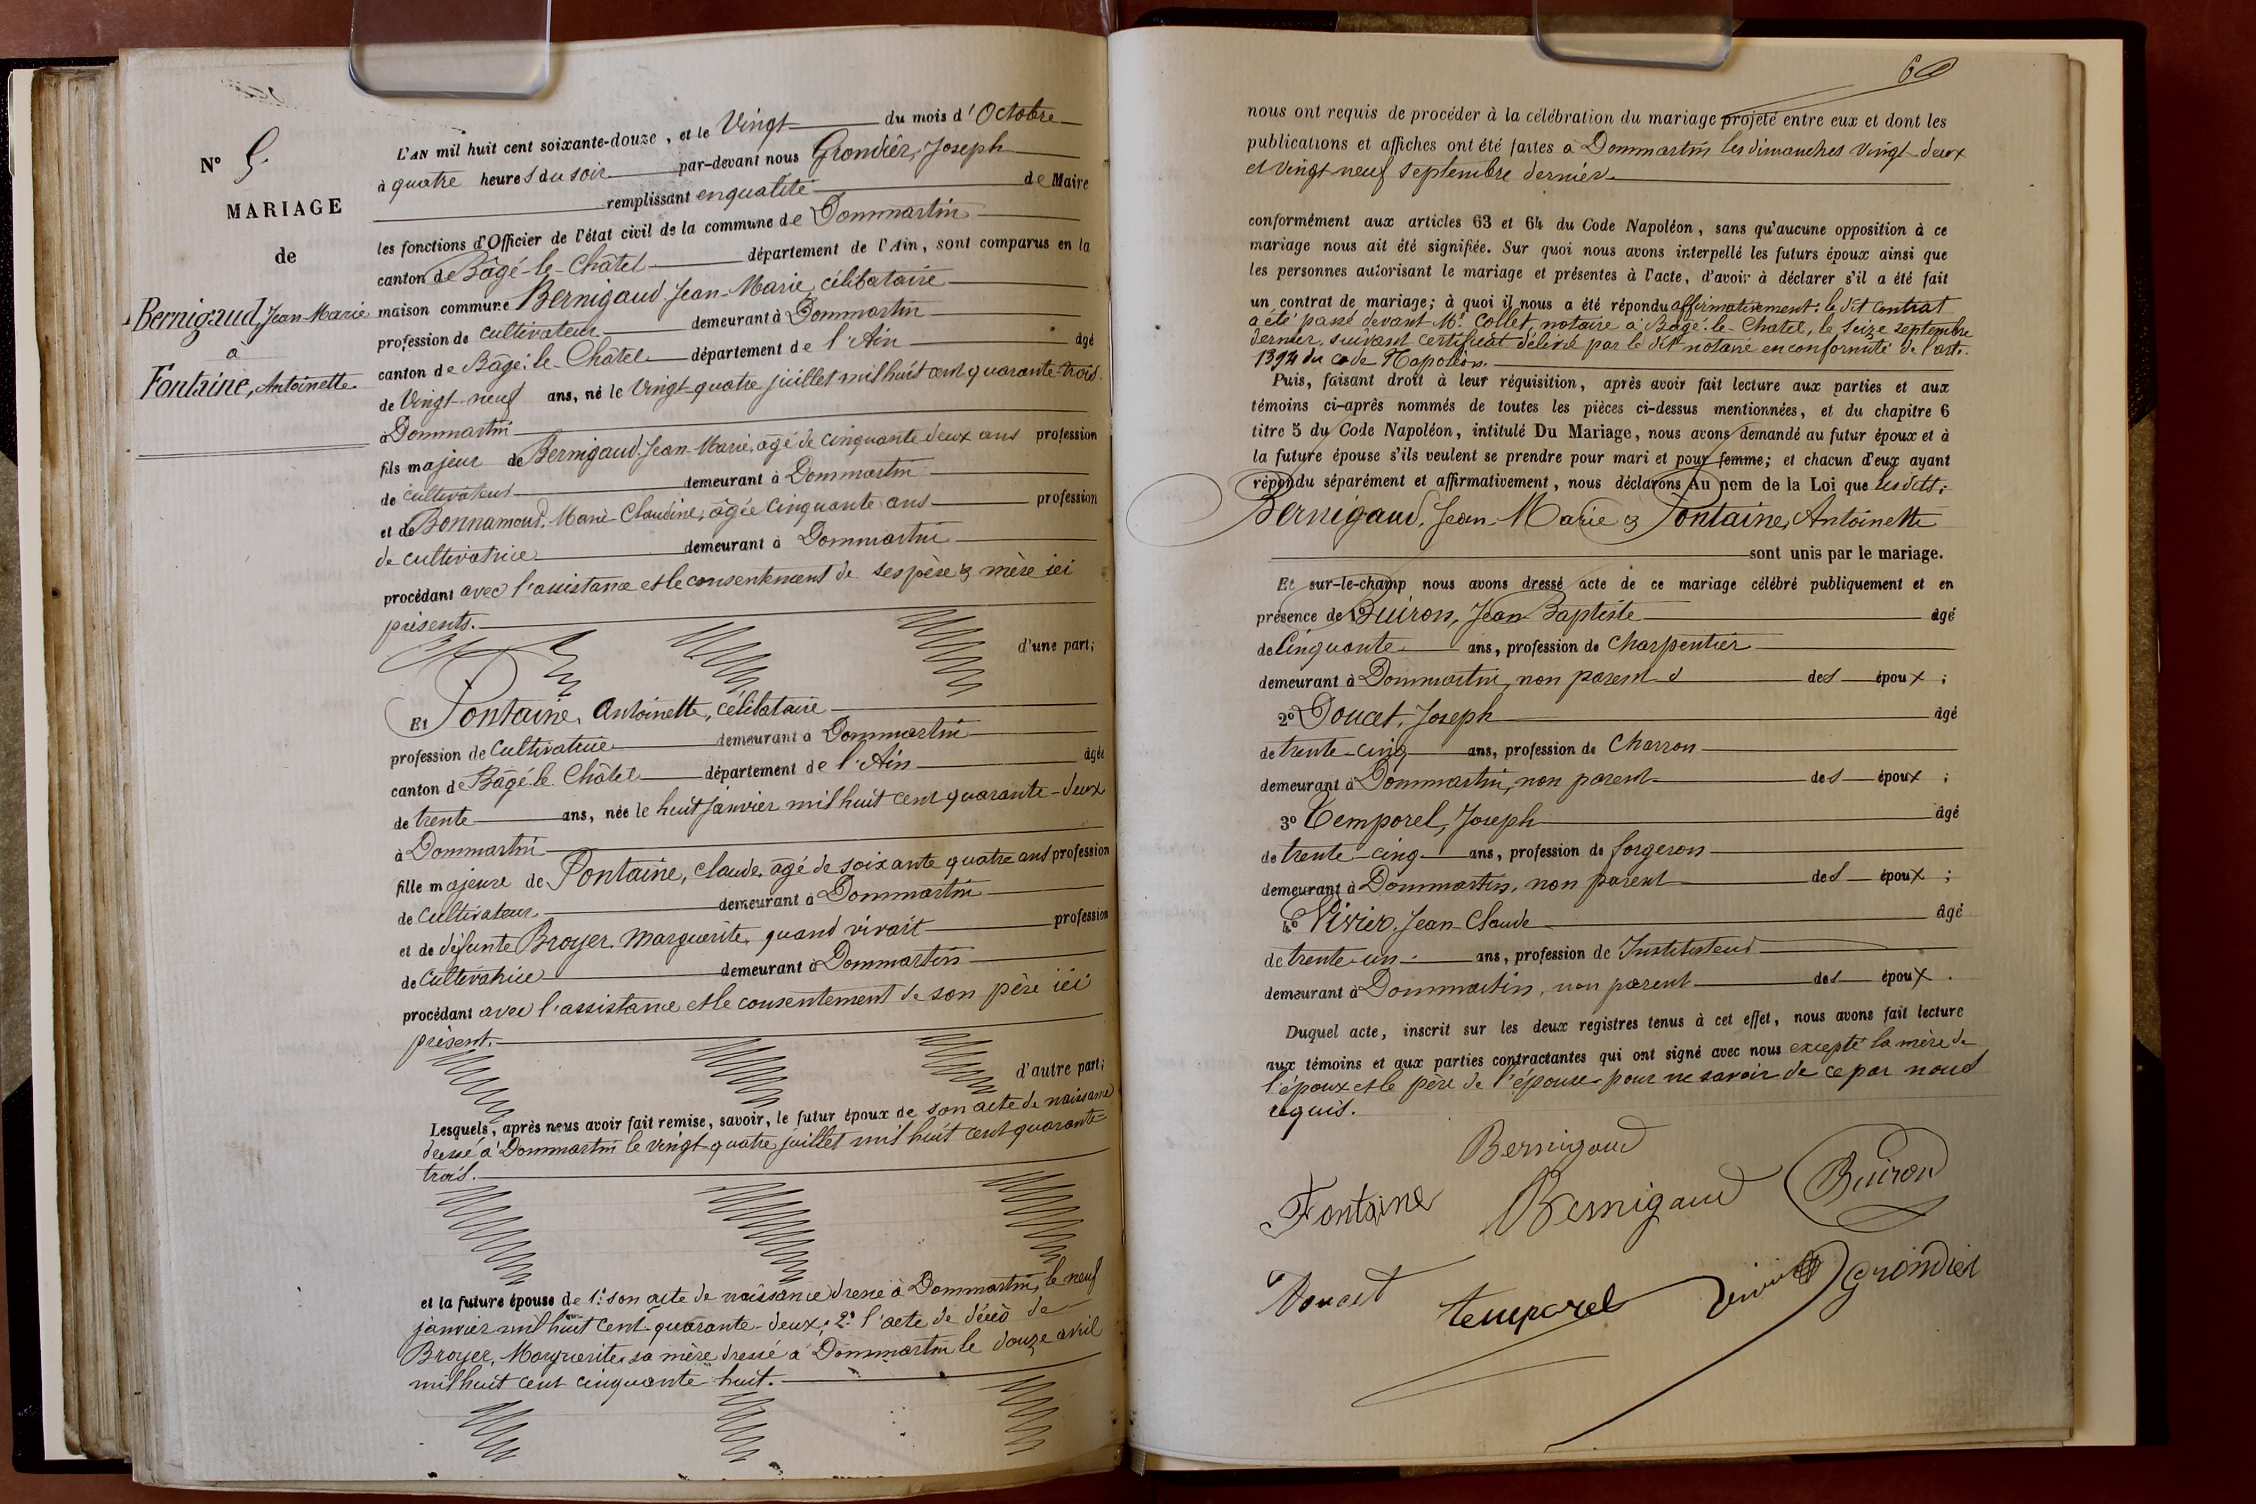 N° 5
MARIAGE
de
Bernigaud, Jean-Marie
à
Fontaine, Antoinette.
L'AN mil huit cent soixante-douze, et le Vingt du mois d'Octobre
à quatre heures du soir par-devant nous Grondier, Joseph
remplissant en qualité de Maire
les fonctions d'Officier de l'état civil de la commune de Dommartin
canton de Bâgé-le-Châtel département de l'Ain, sont comparus en la
maison commune Bernigaud Jean-Marie, célibataire
profession de cultivateur demeurant à Dommartin
canton de Bâgé-le-Châtel département de l'Ain âgé
de Vingt-neuf ans, né le Vingt-quatre juillet mil huit cent quarante-trois
à Dommartin
fils majeur de Bernigaud, Jean-Marie, âgé de cinquante deux ans profession
de cultivateur demeurant à Dommartin
et de Bonnamour, Marie-Claudine, âgée cinquante ans profession
de cultivatrice demeurant à Dommartin
procédant avec l'assistance et le consentement de ses père & mère ici
présents.
d'une part;
Et Fontaine, Antoinette, célibataire
profession de cultivatrice demeurant à Dommartin
canton de Bâgé-le-Châtel département de l'Ain âgée
de trente ans, née le huit janvier mil huit cent quarante-deux
à Dommartin
fille majeure de Fontaine, Claude, âgé de soixante quatre ans profession
de cultivateur demeurant à Dommartin
et de défunte Broyer, Marguerite, quand vivait profession
de cultivatrice demeurant à Dommartin
procédant avec l'assistance et le consentement de son père ici
présent.
d'autre part;
Lesquels, après nous avoir fait remise, savoir, le futur époux de son acte de naissance
dressé à Dommartin le vingt-quatre juillet mil huit cent quarante-
trois.
et la future épouse de 1.° son acte de naissance dressé à Dommartin, le neuf
janvier mil huit cent quarante-deux; 2.° l'acte de décès de
Broyer, Marguerite sa mère dressé à Dommartin le douze avril
mil huit cent cinquante huit.
60
nous ont requis de procéder à la célébration du mariage projeté entre eux et dont les
publications et affiches ont été faites à Dommartin les dimanches vingt-deux
et vingt neuf septembre dernier.
conformément aux articles 63 et 64 du Code Napoléon, sans qu'aucune opposition à ce
mariage nous ait été signifiée. Sur quoi nous avons interpellé les futurs époux ainsi que
les personnes autorisant le mariage et présentes à l'acte, d'avoir à déclarer s'il a été fait
un contrat de mariage; à quoi il nous a été répondu affirmativement: le dit contrat
a été passé devant M.e Collet, notaire à Bâgé-le-Châtel, le seize septembre
dernier, suivant certificat délivré par le dit notaire en conformité de l'art.
1394 du code Napoléon.
Puis, faisant droit à leur réquisition, après avoir fait lecture aux parties et aux
témoins ci-après nommés de toutes les pièces ci-dessus mentionnées, et du chapitre 6
titre 5 du Code Napoléon, intitulé Du Mariage, nous avons demandé au futur époux et à
la future épouse s'ils veulent se prendre pour mari et pour femme; et chacun d'eux ayant
répondu séparément et affirmativement, nous déclarons Au nom de la Loi que les dits:
Bernigaud, Jean-Marie & Fontaine, Antoinette
sont unis par le mariage.
Et sur-le-champ nous avons dressé acte de ce mariage célébré publiquement et en
présence de 1° Buiron, Jean Baptiste âgé
de cinquante ans, profession de charpentier
demeurant à Dommartin, non parent des époux;
2° Doucet, Joseph âgé
de trente-cinq ans, profession de Charron
demeurant à Dommartin, non parent des époux;
3° Temporel, Joseph âgé
de trente-cinq ans, profession de forgeron
demeurant à Dommartin, non parent des époux;
4° Vivier, Jean-Claude âgé
de trente-un ans, profession de Instituteur
demeurant à Dommartin, non parent des époux.
Duquel acte, inscrit sur les deux registres tenus à cet effet, nous avons fait lecture
aux témoins et aux parties contractantes qui ont signé avec nous excepté la mère de
l'époux et le père de l'épouse pour ne savoir de ce par nous
requis.
Bernigaud
Fontaine Bernigaud Buiron
Doucet temporel Vivier Grondier